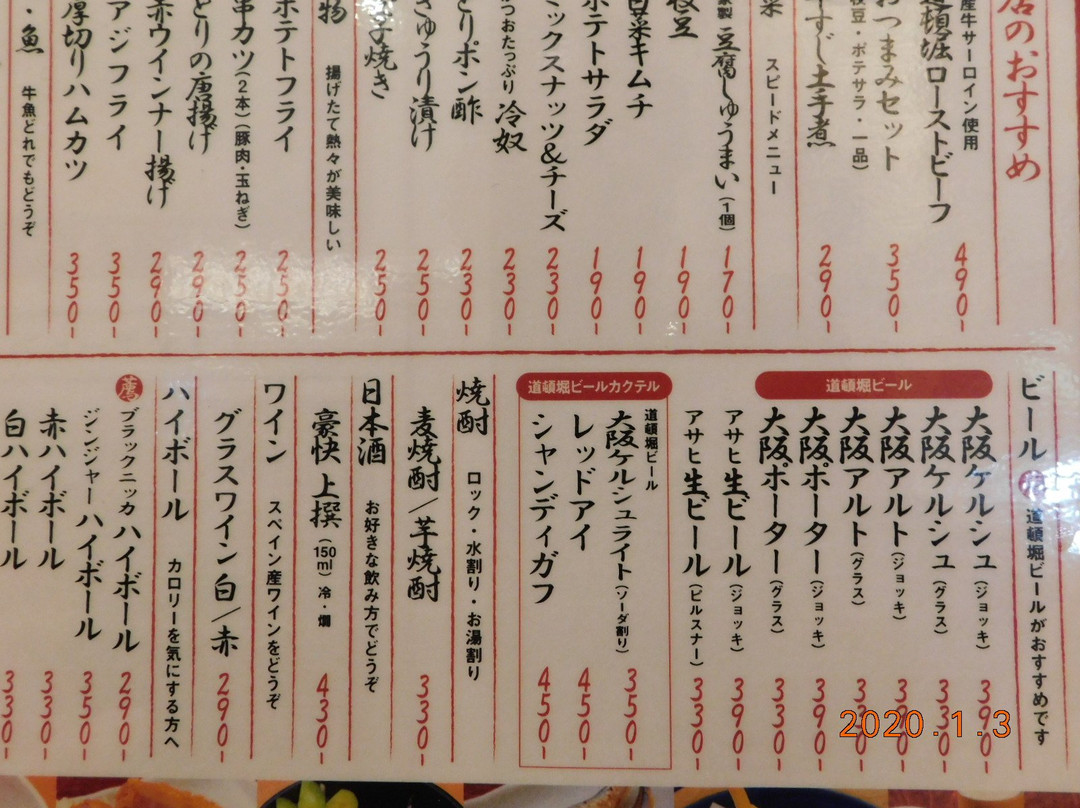 店のおすすめ
産牛サーロイン使用
道頓堀ローストビーフ 490-
おつまみセット 350-
枝豆・ポテサラ・一品)
牛すじ土手煮 290-
菜 スピードメニュー
豆腐しゅうまい(1個) 170-
枝豆 190-
白菜キムチ 190-
ポテトサラダ 190-
ミックスナッツ&チーズ 230-
つおたっぷり 冷奴 230-
とりポン酢 230-
きゅうり漬け 250-
子焼き 250-
物 揚げたて熱々が美味しい
ポテトフライ 250-
串カツ(2本)(豚肉・玉ねぎ) 250-
とりの唐揚げ 290-
赤ウインナー揚げ 290-
アジフライ 350-
厚切りハムカツ 350-
・魚 牛魚どれでもどうぞ
ビール 道頓堀ビールがおすすめです
道頓堀ビール
大阪ケルシュ(ジョッキ) 390-
大阪ケルシュ(グラス) 330-
大阪アルト(ジョッキ) 390-
大阪アルト(グラス) 330-
大阪ポーター(ジョッキ) 390-
大阪ポーター(グラス) 330-
アサヒ生ビール(ジョッキ) 390-
アサヒ生ビール(ピルスナー) 330-
道頓堀ビールカクテル
道頓堀ビール
大阪ケルシュライト(ソーダ割り) 350-
レッドアイ 450-
シャンディガフ 450-
焼酎 ロック・水割り・お湯割り
麦焼酎/芋焼酎 330-
日本酒 お好きな飲み方でどうぞ
豪快 上撰(150ml)冷・燗 430-
ワイン スペイン産ワインをどうぞ
グラスワイン 白/赤 290-
ハイボール カロリーを気にする方へ
薦 ブラックニッカ ハイボール 290-
ジンジャーハイボール 350-
赤ハイボール 330-
白ハイボール 330-
2020.1.3